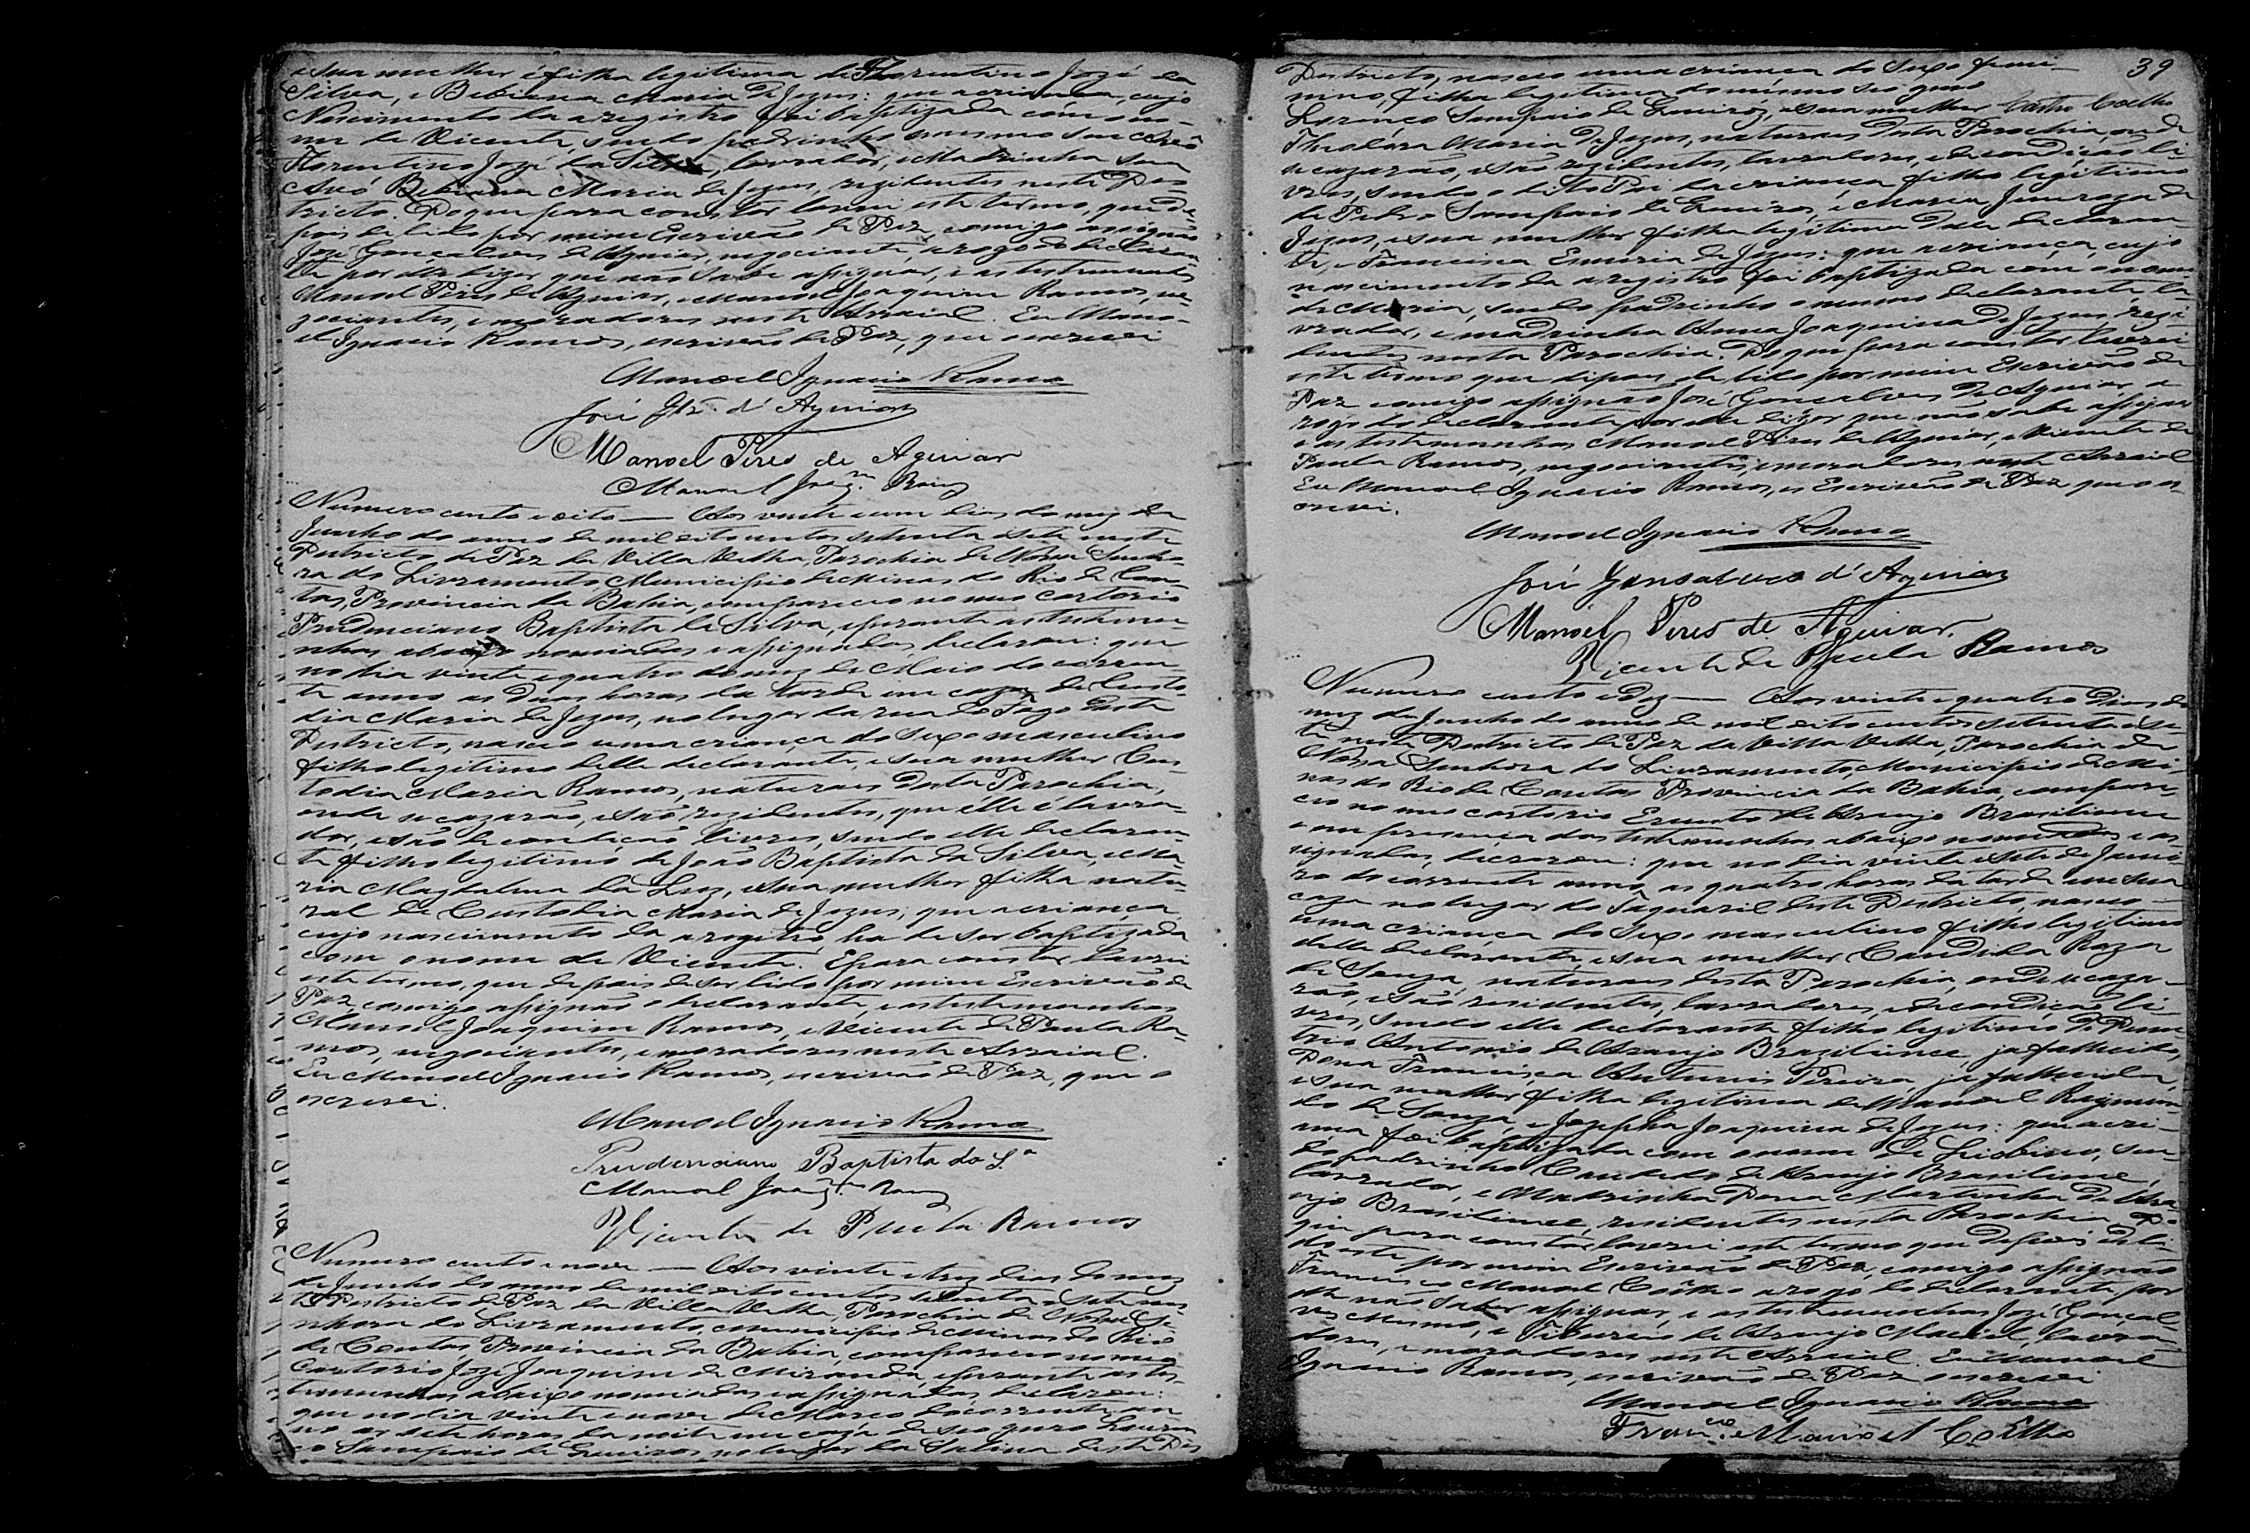 e sua mulher é filha legitima de Florentino Jozé da
Silva, e Bebiana Maria de Jezus: que a criança, cujo
Nascimento da a registro foi baptizada com o no-
me de Vicente, sendo padrinho o mesmo seu Avô
Florentino Jozé da Silva, lavrador, e Madrinha sua
Avó Bebiana Maria de Jezus, rezidentes neste Des-
tricto. Do que para constar lavrei este termo, que de-
pois de lido por mim Escrivão de Paz, comigo assignão
José Gonçalves de Aguiar, negociante, a rogo do declaran-
te por elle dizer que não sabe assignar, e as testemunhas
Manoel Pires de Aguiar, e Manoel Joaquim Ramos, ne-
gociantes, e moradores neste Arraial. Eu Mano-
el Ignacio Ramos, escrivão de Paz, que o escrevi
Manoel Ignacio Ramos
José Glz. d'Aguiar
Manoel Pires de Aguiar
Manoel Joaqm Ramos
Numero cento e oito — Aos vinte e um dias do mez de
Junho do anno de mil oito centos setenta e sete neste
Destricto de Paz da Villa Velha, Parochia de Nossa Senho-
ra do Livramento, Municipio de Minas do Rio de Con-
tas, Provincia da Bahia, compareceo no meo cartorio
Prudenciano Baptista da Silva, e perante as testemu-
nhas abaixo nomiadas e assignadas declarou: que
no dia vinte e quatro do mez de Maio do corren-
te anno as duas horas da tarde em caza de Custo-
dia Maria de Jezus, no lugar da rua do Fogo deste
Destricto, nasceo uma criança do sexo masculino
filho legitimo delle declarante, e sua mulher Cus-
todia Maria Ramos, naturaes desta Parochia,
onde se cazarão, e são rezidentes, que elle é lavra-
dor, e são de condição livres, sendo elle declaran-
te filho legitimo de João Baptista da Silva, e Ma-
ria Magdalena da Luz, e sua mulher filha natu-
ral de Custodia Maria de Jezus; que a criança
cujo nascimento da a registro, ha de ser baptizada
com o nome de Vicente. E para constar lavrei
este termo, que depois de ser lido por mim Escrivão de
Paz, comigo assignão o declarante, e as testemunhas
Manoel Joaquim Ramos, e Vicente de Paula Ra-
mos, negociantes, e moradores neste Arraial.
Eu Manoel Ignacio Ramos, escrivão de Paz, que o
escrevi.
Manoel Ignacio Ramos
Prudenciano Baptista da Sª
Manoel Joaqm Ramos
Vicente de Paula Ramos
Numero cento e nove — Aos vinte e trez dias do mez
de Junho do anno de mil oito centos setenta e sete nes-
te Destricto de Paz da Villa Velha, Parochia de Nossa Se-
nhora do Livramento, Municipio de Minas do Rio
de Contas Provincia da Bahia, compareceo no meo
Cartorio Jozé Joaquim de Miranda, e perante as tes-
temunhas abaixo nomiadas e assignadas declarou:
que no dia vinte e nove de Março do corrente an-
no as sete horas da noite em caza de seo genro Louren-
ço Sampaio de Queiroz, no lugar da Salina deste Des-
39
Destricto, nasceo uma criança do sexo femi-
nino, filha legitima do mesmo seo genro
Lorenço Sampaio de Queiroz, e sua mulher
Castro Coelho
Theodóra Maria de Jezus, naturaes desta Parochia, onde
se cazarão, e são rezidentes, lavradores, e de condição li-
vres, sendo o dito Pai da criança filho legitimo
de Pedro Sampaio de Queiroz, e Maria
Jezus, e sua mulher filha legitima delle declaran-
te, e Francisca Emeria de Jezus: que a criança, cujo
nascimento da a registro foi baptizada com o nome
de Maria, sendo padrinho o mesmo declarante la-
vrador, e madrinha Anna Joaquina de Jezus, rezi-
dentes nesta Parochia. Do que para constar lavrei
este termo que dipois de lido por mim Escrivão de
Paz comigo assignão José Gonçalves de Aguiar, a
rogo do declarante por elle dizer que não sabe assignar
e as testemunhas Manoel Pires de Aguiar, e Vicente de
Paula Ramos, negociantes, e moradores neste Arraial
Eu Manoel Ignacio Ramos, o Escrivão de Paz que o es-
crevi.
Manoel Ignacio Ramos
José Gonsalves d'Aguiar
Manoel Pires de Aguiar.
Vicente de Paula Ramos
Numero cento e dez — Aos vinte e quatro dias do
mez de Junho do anno de mil oito centos setenta e se-
te neste Destricto de Paz da Villa Velha, Parochia de
Nossa Senhora do Livramento, Municipio de Mi-
nas do Rio de Contas Provincia da Bahia, compare-
ceo no meo cartorio Ernesto de Araujo Brasilience
e em presença das testemunhas abaixo nomiadas e as-
signadas, declarou: que no dia vinte e sete de Janei-
ro do corrente anno, as quatro horas da tarde em sua
caza no lugar do Taquaril deste Destricto, nasceo
uma criança do sexo masculino filho legitimo
delle declarante, e sua mulher Candida Roza
de Souza, naturaes desta Parochia, onde se caza-
rão, e são residentes, lavradores, e de condição li-
vres, sendo elle declarante filho legitimo de
Antonio de Araujo Brazilience, ja fallecido,
Dona Francisca Antunis Pereira, ja fallecida,
e sua mulher filha legitima de Manoel Raymun-
do de Souza, e Josepha Joaquina de Jezus: que a cri-
ança foi baptizada com o nome de sen-
do padrinho Candido de Araujo Brasilience,
lavrador, e Madrinha Dona Martinha de Ara-
ujo Brasilience, residentes nesta Parochia. Do
que para constar lavrei este termo que depois de li-
do este por mim Escrivão de Paz, comigo assignão
Francisco Manoel Coelho a rogo do declarante por
elle não saber assignar, e as testemunhas José Gonçal-
ves e Tiburcio de Araujo Maciel, lavra-
dores, e moradores neste Arraial. Eu Manoel
Ignacio Ramos, escrivão de Paz o escrevi
Manoel Ignacio Ramos
Franco Manoel Coelho